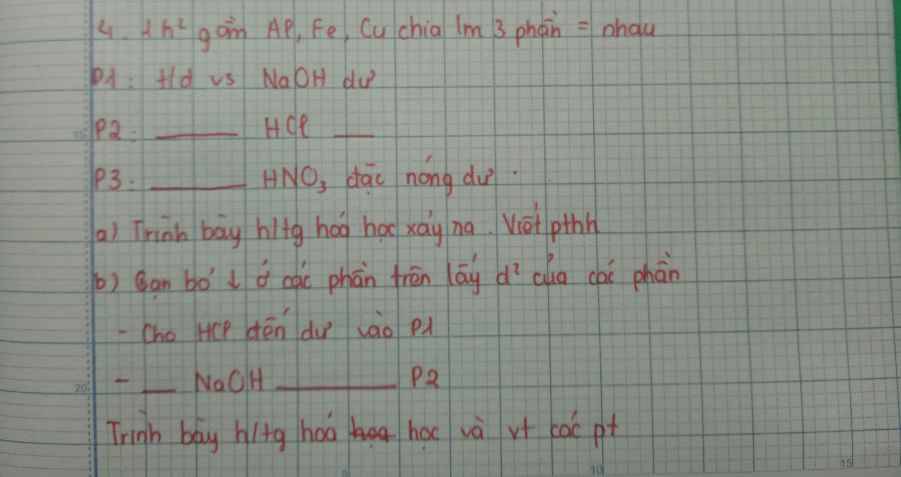 4. 1 h² gồm Al, Fe, Cu chia lm 3 phần = nhau
P1: t/d vs NaOH dư
P2: ___ HCl ___
P3: ___ HNO₃ đặc nóng dư.
a) Trình bày h/tg hoá học xảy ra. Viết pthh
b) Gạn bỏ ↓ ở các phần trên lấy d² của các phần
- Cho HCl đến dư vào P1
- ___ NaOH ___ P2
Trình bày h/tg hoá học và vt các pt
20
10
15